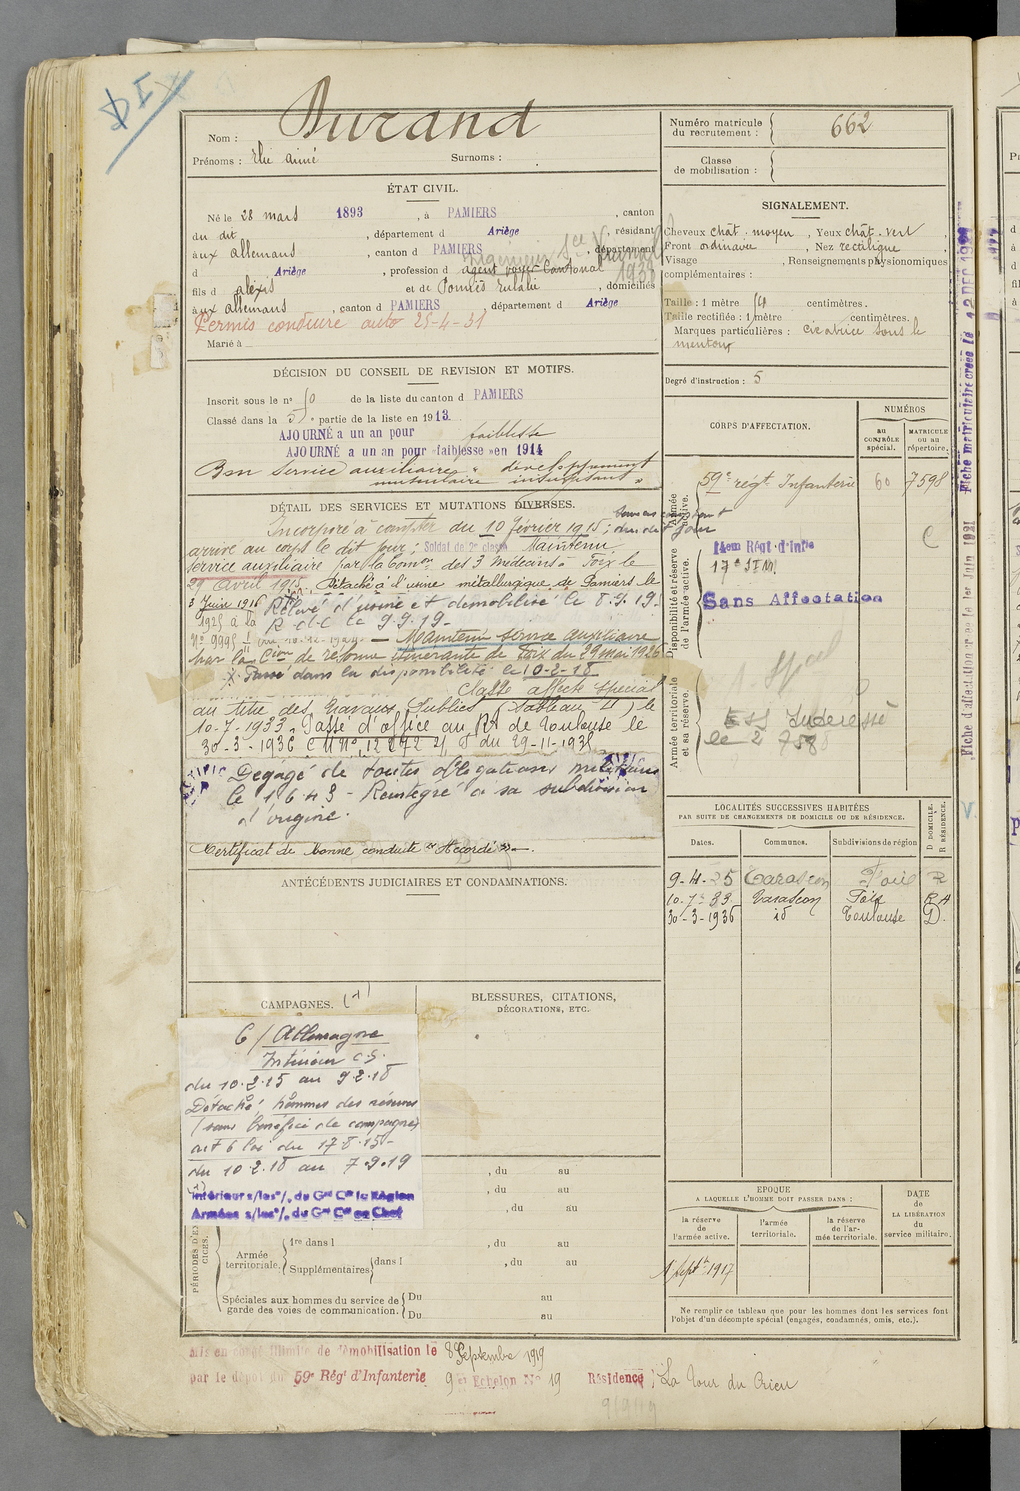 DIX
Nom : Durand
Prénoms : Elie aimé Surnoms :
Numéro matricule du recrutement : 662
Classe de mobilisation :
ÉTAT CIVIL.
Né le 28 mars 1893, à PAMIERS, canton
du dit, département d Ariège, résidant
aux allemans, canton d PAMIERS, département
d Ariège, profession d agent voyer Cantonal
Ingénieur
1938
fils d alexis et de Eulalie, domiciliés
aux allemans, canton d PAMIERS département d Ariège
Permis conduire auto 25-4-31
Marié à
SIGNALEMENT.
Cheveux chât. moyen, Yeux chât. vert
Front ordinaire, Nez rectiligne
Visage, Renseignements physionomiques
complémentaires :
Taille : 1 mètre 64 centimètres.
Taille rectifiée : 1 mètre centimètres.
Marques particulières : Cicatrice sous le
menton
Degré d'instruction : 5
DÉCISION DU CONSEIL DE REVISION ET MOTIFS.
Inscrit sous le n° 50 de la liste du canton d PAMIERS
Classé dans la 5e partie de la liste en 1913.
AJOURNÉ a un an pour faiblesse
AJOURNÉ a un an pour «faiblesse» en 1914
Bon Service auxiliaire « développement
musculaire insuffisant »
DÉTAIL DES SERVICES ET MUTATIONS DIVERSES.
Incorporé à compter du 10 février 1915 ;
arrivé au corps le dit jour ; Soldat de 2e classe Maintenu
service auxiliaire par la Comon des 3 médecins à Foix le
29 avril 1915. Détaché à l'usine métallurgique de Pamiers le
3 Juin 1916
Relevé d'usine et démobilisé le 8.9.19.
1925 à la R d C le 9.9.19-
N° 9995 Maintenu service auxiliaire
par la Cion de réforme itinérante de Foix du 29 mai 1926
X Passé dans la disponibilité le 10-2-18
Classé affecté spécial
au titre des Travaux Publics (Tableau II) le
10-7-1933. Passé d'office au Rt de Toulouse le
30-3-1936 du 29-11-1935
Dégagé de toutes obligations militaires
le 1 6 43 - Réintégré à sa subdivision
d'origine.
Certificat de bonne conduite "Accordé".
CORPS D'AFFECTATION.
NUMÉROS
au CONTRÔLE spécial.
MATRICULE ou au répertoire.
Armée active.
59e régt Infanterie 60 7598
Disponibilité et réserve de l'armée active.
14em Régt d'Infie
17e S.E.M.
Sans Affectation
Armée territoriale et sa réserve.
Fiche matriculaire créée le 12 DEC 1921
LOCALITÉS SUCCESSIVES HABITÉES
PAR SUITE DE CHANGEMENTS DE DOMICILE OU DE RÉSIDENCE.
Dates. Communes. Subdivisions de région
D DOMICILE. R RÉSIDENCE.
9-4-25 Tarascon Foix R
10-7-33 Tarascon Foix
30-3-1936 id Toulouse D.
ANTÉCÉDENTS JUDICIAIRES ET CONDAMNATIONS.
CAMPAGNES.
C / Allemagne
Intérieur C.S.
du 10.2.15 au 9.2.18
Détaché hommes des réserves
(sans bénéfice de campagne)
art 6 loi du 17.8.15-
du 10.2.18 au 7.9.19
Intérieur s/les o/. du Gal Ct la Région
Armées s/les o/. du Gal Ct en Chef
BLESSURES, CITATIONS,
DÉCORATIONS, ETC.
, du au
, du au
, du au
Armée territoriale. 1re dans l , du au
Supplémentaires dans l , du au
Spéciales aux hommes du service de garde des voies de communication. Du au
Du au
EPOQUE
A LAQUELLE L'HOMME DOIT PASSER DANS :
la réserve de l'armée active.
l'armée territoriale.
la réserve de l'armée territoriale.
DATE de LA LIBÉRATION du service militaire.
1 Septre 1917
Ne remplir ce tableau que pour les hommes dont les services font
l'objet d'un décompte spécial (engagés, condamnés, omis, etc.).
Mis en congé illimité de démobilisation le 8 Septembre 1919
par le dépôt du 59e Régt d'Infanterie 9e Echelon N° 19 Résidence ; La Tour du Crieu